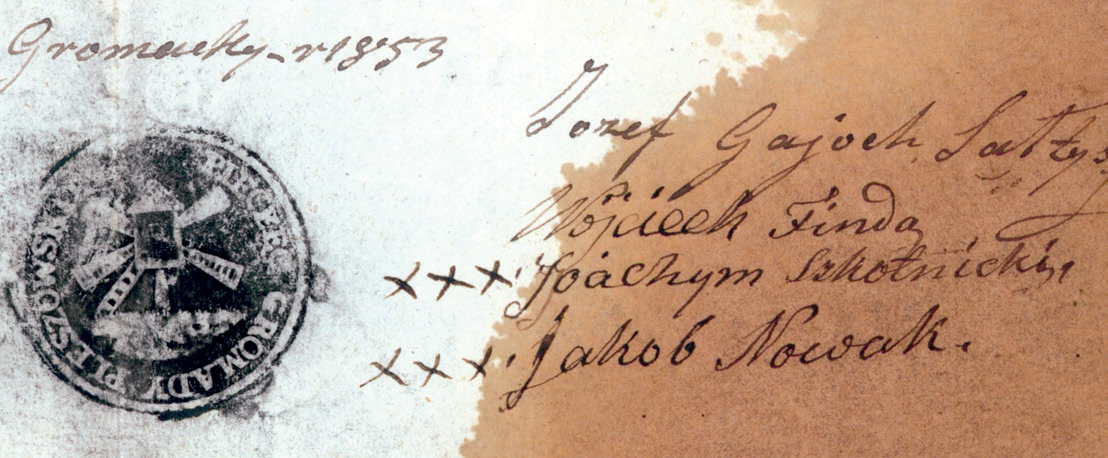 Gromacky - r 1853
Jozef Gajoch Sałtys
Wojciech Finda
x x x Joachym Szkotnicki
x x x Jakob Nowak.
PIECZĘĆ GROMADY PLESZOWSKI